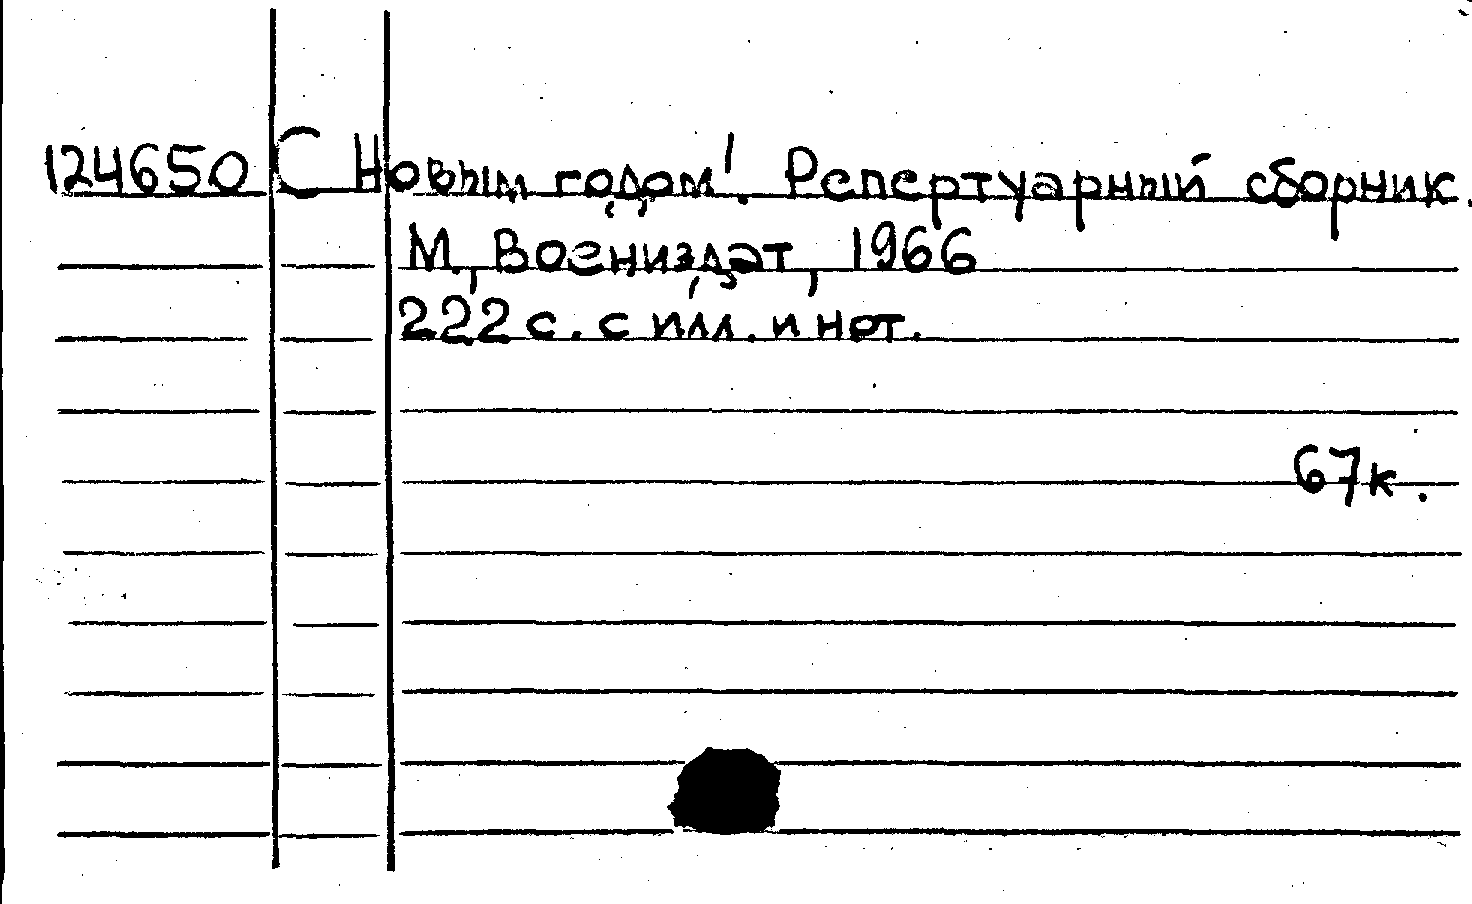 124650 С Новым годом! Репертуарный сборник.
М., Воениздат, 1966
222 с. с илл. и нот.
67к.